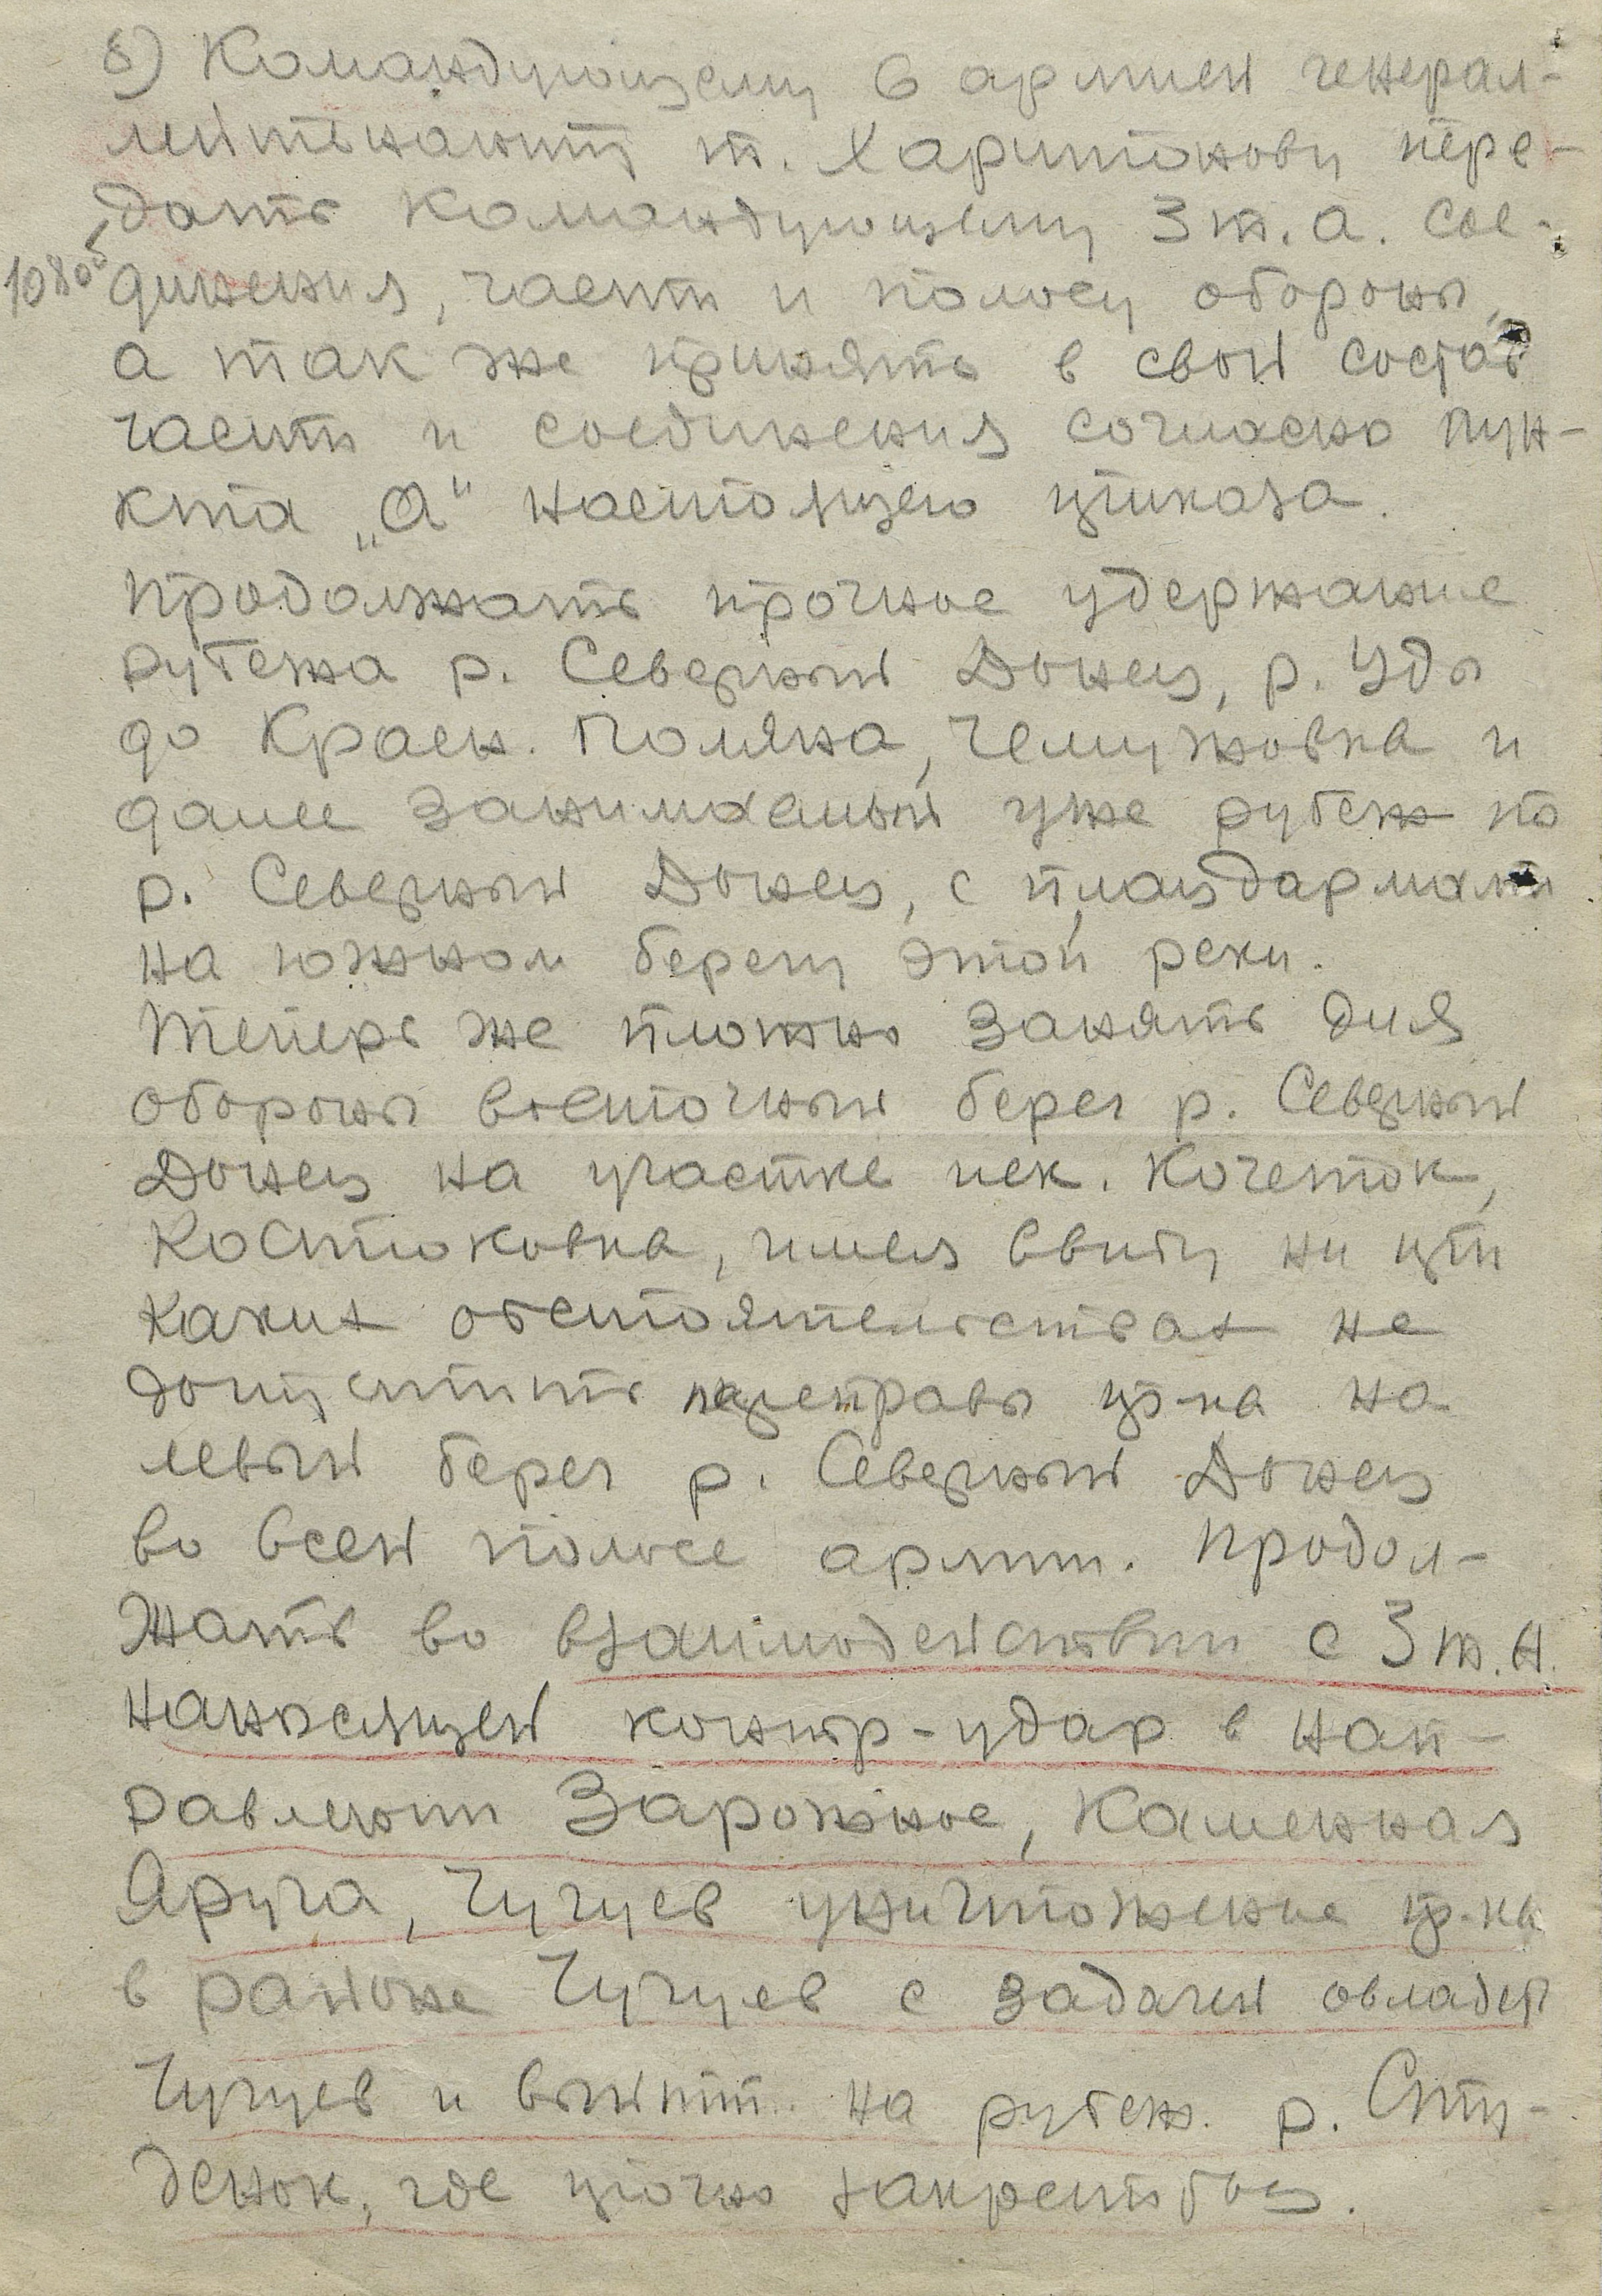 б) Командующему 6 армией генерал-
лейтенанту т. Харитонову пере-
дать Командующему 3 т. а. сое-
динения, части и полосу обороны,
а так же принять в свой состав
части и соединения согласно пун-
кта „а" настоящего приказа.
Продолжать прочное удержание
рубежа р. Северный Донец, р. Уды
до Красн. Поляна, Чемужовка и
далее занимаемый уже рубеж по
р. Северный Донец, с плацдармами
на южном берегу этой реки.
Теперь же плотно занять для
оборомы восточный берег р. Северный
Донец на участке иск. Кочеток,
Костюковка, имея ввиду ни при
каких обстоятельствах не
допустить переправы пр-ка на
левый берег р. Северный Донец
во всей полосе армии. Продол-
жать во взаимодействии с 3 т. А.
наносящей контр-удар в нап-
равлении Зарожное, Каменная
Яруга, Чугуев уничтожение пр-ка
в районе Чугуев с задачей овладеть
Чугуев и выйти на рубеж р. Сту-
денок, где прочно закрепиться.